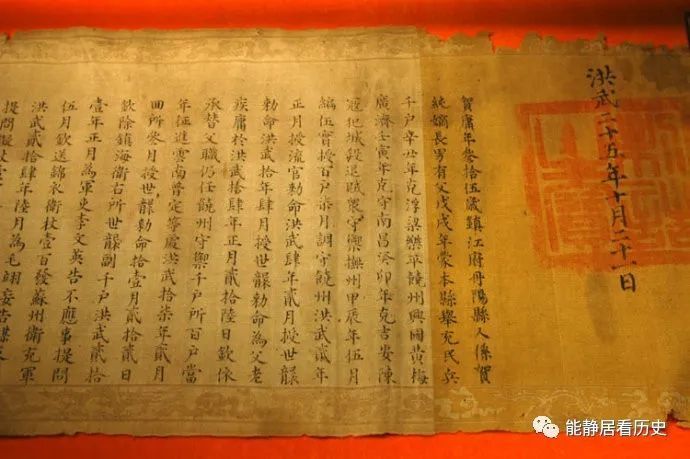 洪武二十五年十月二十一日
賀庸年叄拾伍歲鎮江府丹陽縣人係賀
純嫡長男有父戊戌年蒙本縣舉充民兵
千戶辛丑年克浮梁樂平饒州興國黃梅
廣濟壬寅年克守南昌癸卯年克吉安陳
寇犯城殺退賊衆守禦撫州甲辰年伍月
編伍實授百戶柒月調守饒州洪武貳年
正月授流官勅命洪武肆年貳月授世襲
勅命洪武拾年肆月授世襲勅命為父老
疾庸於洪武拾肆年正月貳拾陸日欽依
承替父職仍任饒州守禦千戶所百戶當
年征進雲南普定等處洪武拾柒年貳月
回所叄月授世襲勅命拾壹月貳拾貳日
欽除鎮海衛右所世襲副千戶洪武貳拾
壹年正月為軍吏李文英告不應事提問
伍月欽送錦衣衛杖壹百發蘇州衛充軍
洪武貳拾肆年陸月為毛翊妄告謀
提問
能静居看历史